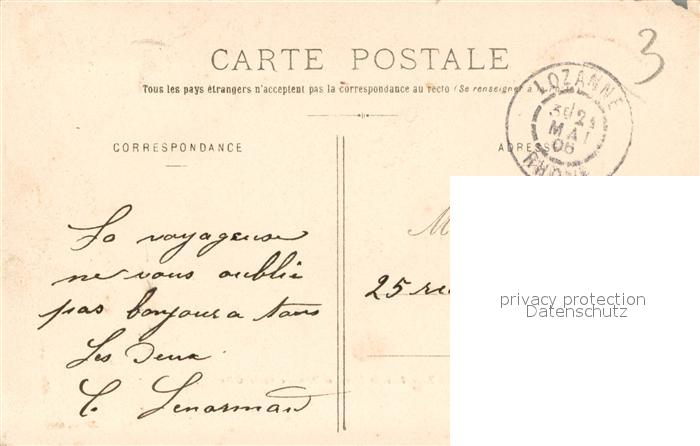 3
CARTE POSTALE
Tous les pays étrangers n'acceptent pas la correspondance au recto (Se renseigner à
LOZANNE
3E 21
MAI
06
RHONE
CORRESPONDANCE
ADRESSE
La voyageuse
ne vous oublie
pas bonjour a tous
Les Deux
C. Lenormand
M
25 rue
privacy protection
Datenschutz